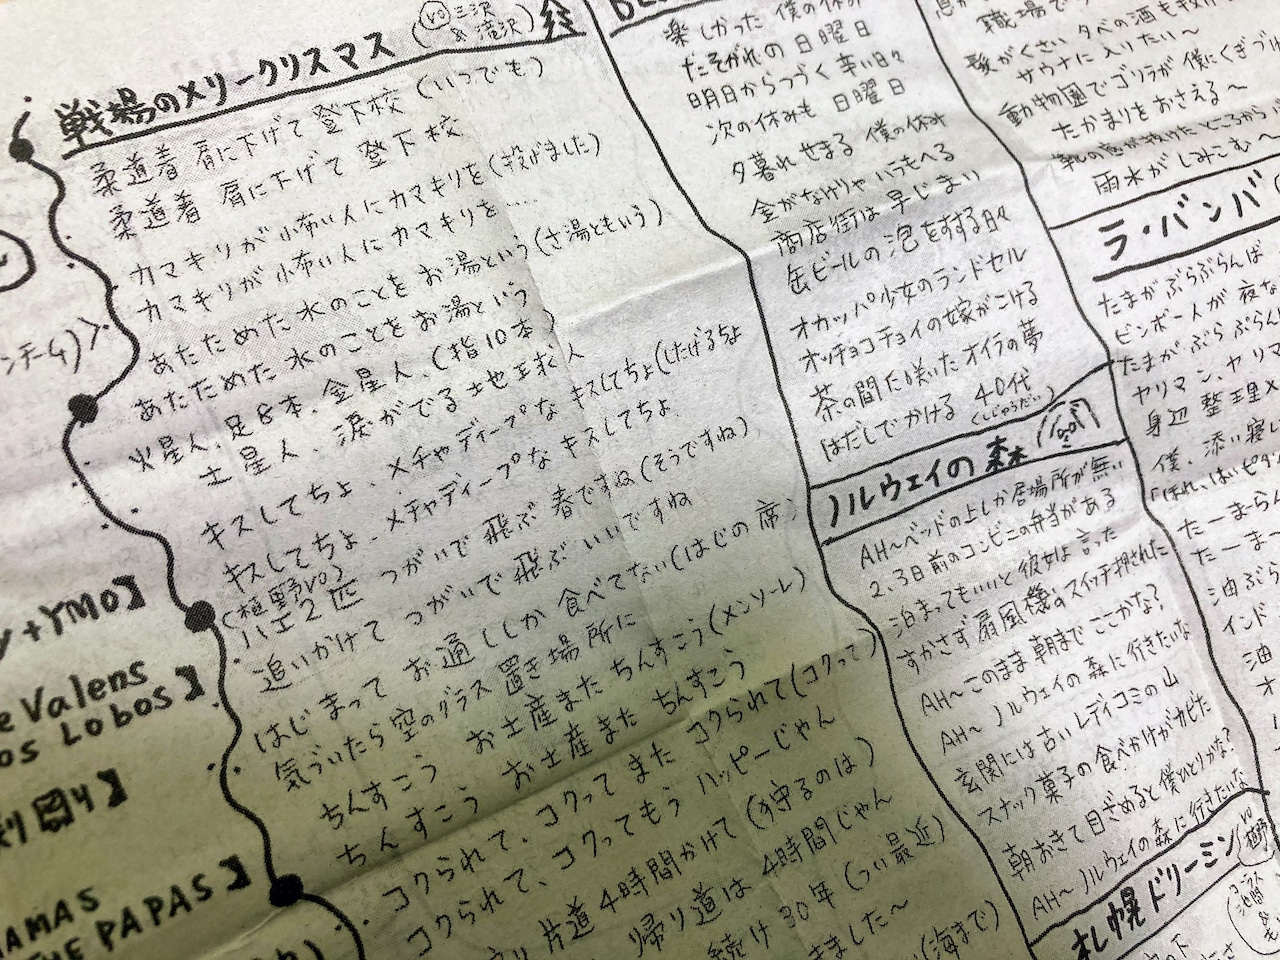 戦場のメリークリスマス
vo 三沢
& 滝沢
柔道着 肩に下げて 登下校 (いつでも)
柔道着 肩に下げて 登下校
カマキリが 小布い人に カマキリを (投げました)
カマキリが 小布い人に カマキリを……
あたためた 水のことを お湯という (さ湯ともいう)
あたためた 水のことを お湯という
火星人、足8本、金星人、(指10本)
土星人、涙がでる 土地球人
キスしてちょ、メチャディープな キスしてちょ (したげるちょ
キスしてちょ、メチャディープな キスしてちょ
(植野vo)
ハエ2匹 つがいで 飛ぶ 春ですね (そうですね)
追いかけて つがいで 飛ぶ いいですね
はじまって お通ししか 食べてない (はじの席)
気づいたら 空のグラス 置き場所に
ちんすこう お土産また ちんすこう (メンソーレ)
ちんすこう お土産また ちんすこう
コクられて、コクって また コクられて (コクって)
コクられて、コクって もう ハッピーじゃん
片道 4時間かけて (守るのは)
帰り道は 4時間じゃん
続け 30年 (つい最近)
きました〜
(海まで)
楽しかった 僕の休み
たそがれの 日曜日
明日からつづく 辛い日々
次の休みも 日曜日
夕暮れ せまる 僕の休み
金がなけりゃ ハラもへる
商店街は 早じまい
缶ビールの 泡をすする日々
オカッパ少女のランドセル
オッチョコチョイの嫁がこける
茶の間に咲いた オイラの夢
はだしでかける 40代
(くしゅうだい)
ノルウェイの森
AH〜ベッドの上しか居場所が無い
2、3日前のコンビニの弁当がある
泊まっても……と彼女は言った
すかさず 扇風機のスイッチ押された
AH〜このまま 朝まで ここかな?
AH〜 ノルウェイの 森に行きたいな
玄関には古い レディコミの山
スナック菓子の食べかけがカビた
朝おきて 目ざめると 僕ひとりかな?
AH〜 ノルウェイの 森に行きたいな
札幌ドリーミン
職場で
髪がくさい 夕べの酒も
サウナに 入りたい〜
動物園でゴリラが 僕にくぎづけ
たかまりをおさえる〜
雨水が しみこむ〜
ラ・バンバ
たまがぶらぶらんば
ビンボー人が 夜な
たまがぶらぶらん
ヤリマン、ヤリマ
身辺 整理
僕、添い寝
たーまーらん
たーまー
油ぶら
インド
油
+YMO】
Valens
os LOBOS】
AMAS
THE PAPAS】